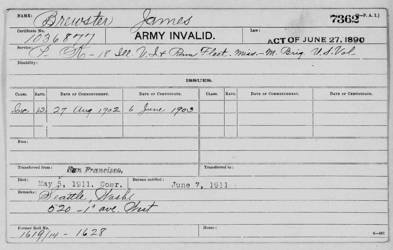 NAME: Brewster James 7362 (P. A. I.)
Certificate No. 1036877 ARMY INVALID. Law: ACT OF JUNE 27, 1890
18 Ill. V. I. & Ram Fleet. Miss. M. Brig. U.S. Vol.
Disability:
ISSUES.
CLASS. RATE. DATE OF COMMENCEMENT. DATE OF CERTIFICATE. CLASS. RATE. DATE OF COMMENCEMENT. DATE OF CERTIFICATE.
Inv 12 27 Aug 1902 6 June 1903
Fees:
Transferred from: San Francisco,
May 5, 1911. Boarm notified June 7, 1911
Remarks: Seattle, Wash.
520 - 1st ave. West
Former Roll No. 1619/14 - 1628 Home: